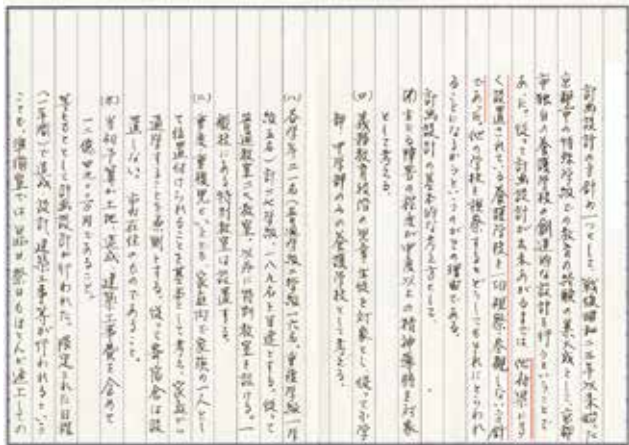 計画設計の方針の一つとして、戦後昭和二三年以来培った
京都市の特殊学級での教育の経験の集大成として、京都
市独自の養護学校の創造的な設計を行うということで
あった。従って計画設計が出来あがるまでは、他府県に多
く設置されている養護学校を一切視察、参観しない方針
であった。他の学校を視察するとどうしてもそれにとらわれ
ることになるからというのがその理由である。
計画設計の基本的な考え方として、
(イ)主になる障害の程度が中度以上の精神薄弱を対象
として考える。
(ロ)義務教育段階の児童生徒を対象とし、従って小学
部、中学部のみの養護学校として考える。
(ハ)各学年二一名(普通学級二学級一六名、重複学級一学
級五名)計二七学級、一八九名を目途とする。従って
普通教室二七教室、以外に特別教室を設ける。一
般校にある特別教室は設置する。
(ニ)重度、重複児といえども、家庭内で家族の一人とし
て位置付けられることを基本として考え、家庭から
通学することを原則とする。従って寄宿舎は設
置しない。市内在住のものであること。
(ホ)当初予算が土地、造成、建築工事費を含めて
一二億四九〇〇万円であること。
等をもととして計画設計が行われた。限定された日程
(一年間)で造成、設計、建築工事等が行われるという
ことで、準備室では日曜日、祭日もほとんど返上しての